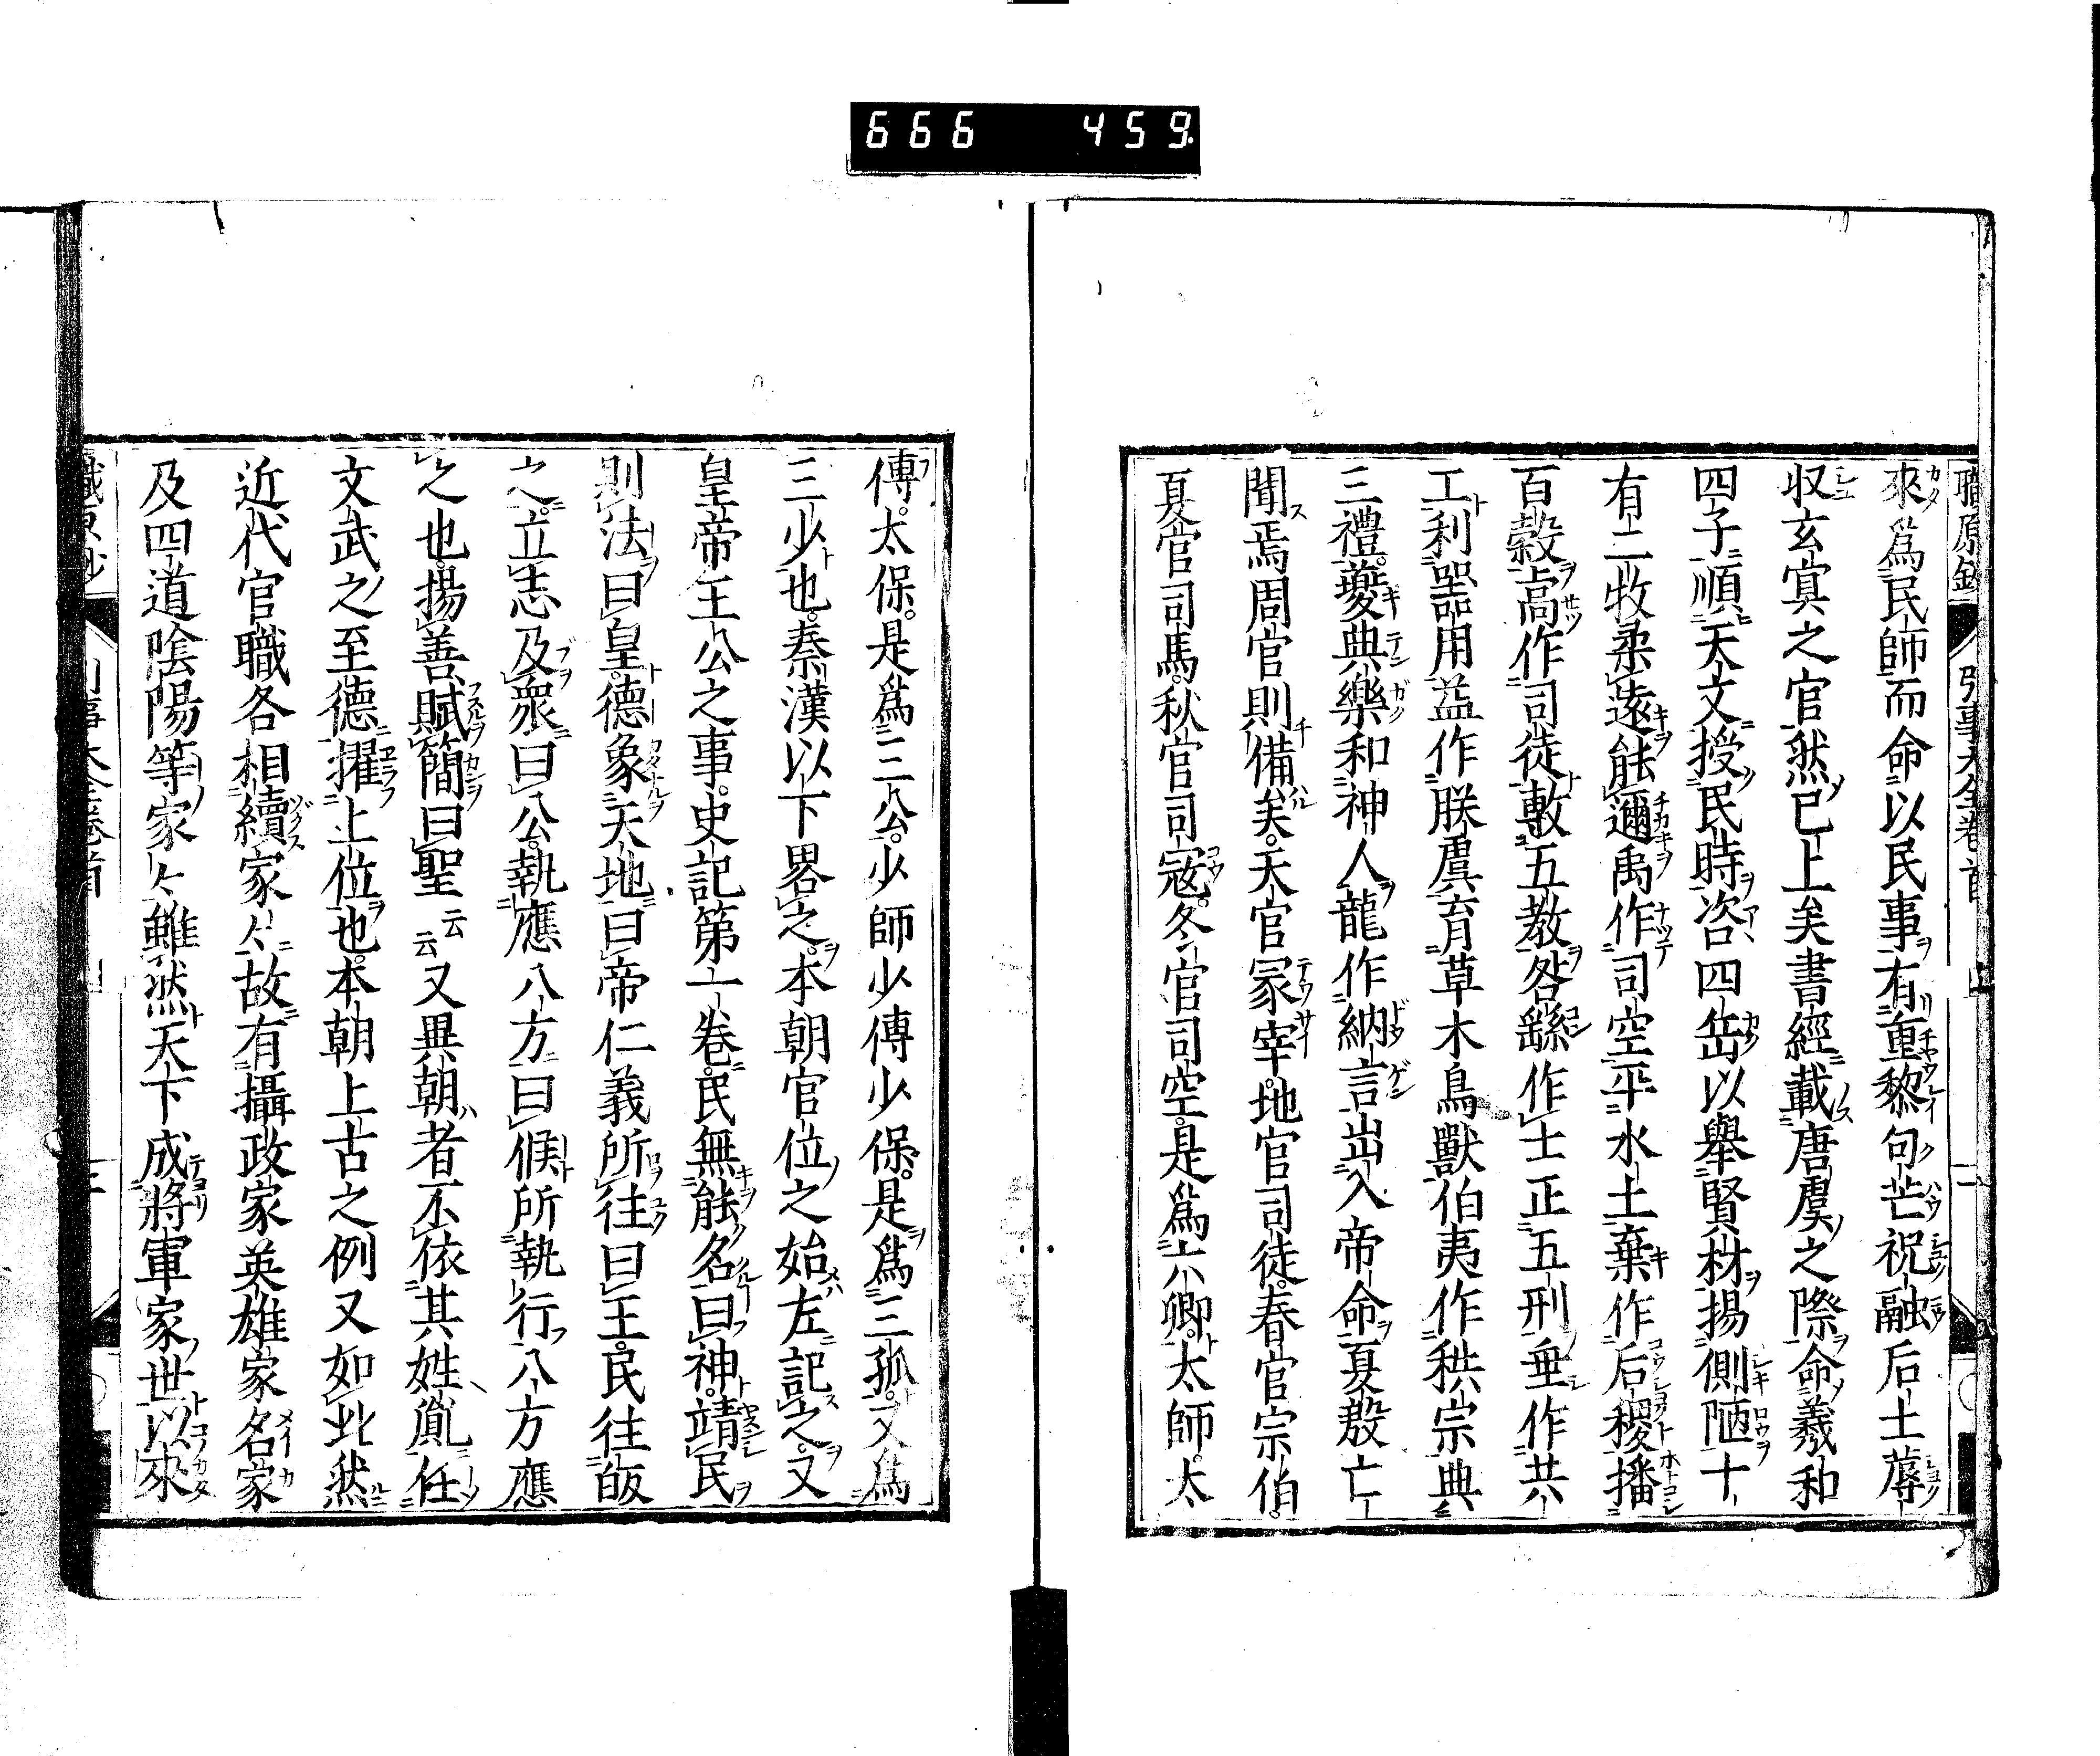 666 459
職原鈔 引事大全卷首
來爲民師而命以民事有重黎句芒祝融后土蓐
収玄冥之官然已上矣書經載唐虞之際命羲和
四子順天文授民時咨四岳以舉賢材揚側陋十
有二牧柔遠能邇禹作司空平水土棄作后稷播
百穀卨作司徒敷五教咎繇作士正五刑垂作共
工利噐用益作朕虞育草木鳥獸伯夷作秩宗典
三禮夔典樂和神人龍作納言出入帝命夏殷亡
聞焉周官則備矣天官冢宰地官司徒春官宗伯
夏官司馬秋官司寇冬官司空是爲六卿太師太
傅太保是爲三公少師少傅少保是爲三孤又爲
三少也秦漢以下畧之本朝官位之始左記之又
皇帝王公之事史記第一卷民無能名曰神靖民
則法曰皇德象天地曰帝仁義所往曰王民往皈
之立志及衆曰公執應八方曰候所執行八方應
之也揚善賦簡曰聖云云又異朝者不依其姓胤任
文武之至德擢上位也本朝上古之例又如此然
近代官職各相續家々故有攝政家英雄家名家
及四道陰陽等家々雖然天下成將軍家世以來